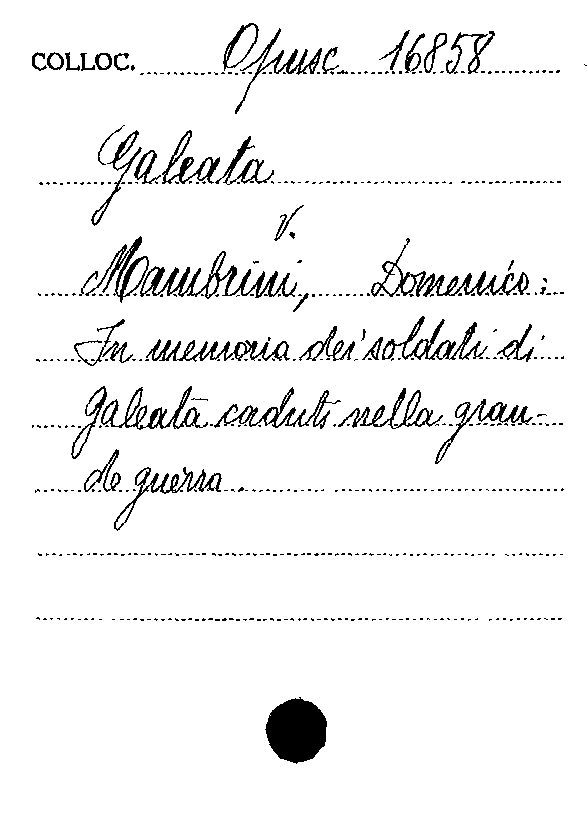 COLLOC. Opusc. 16858
Galeata
v.
Mambrini, Domenico:
In memoria dei soldati di
Galeata caduti nella gran-
de guerra.